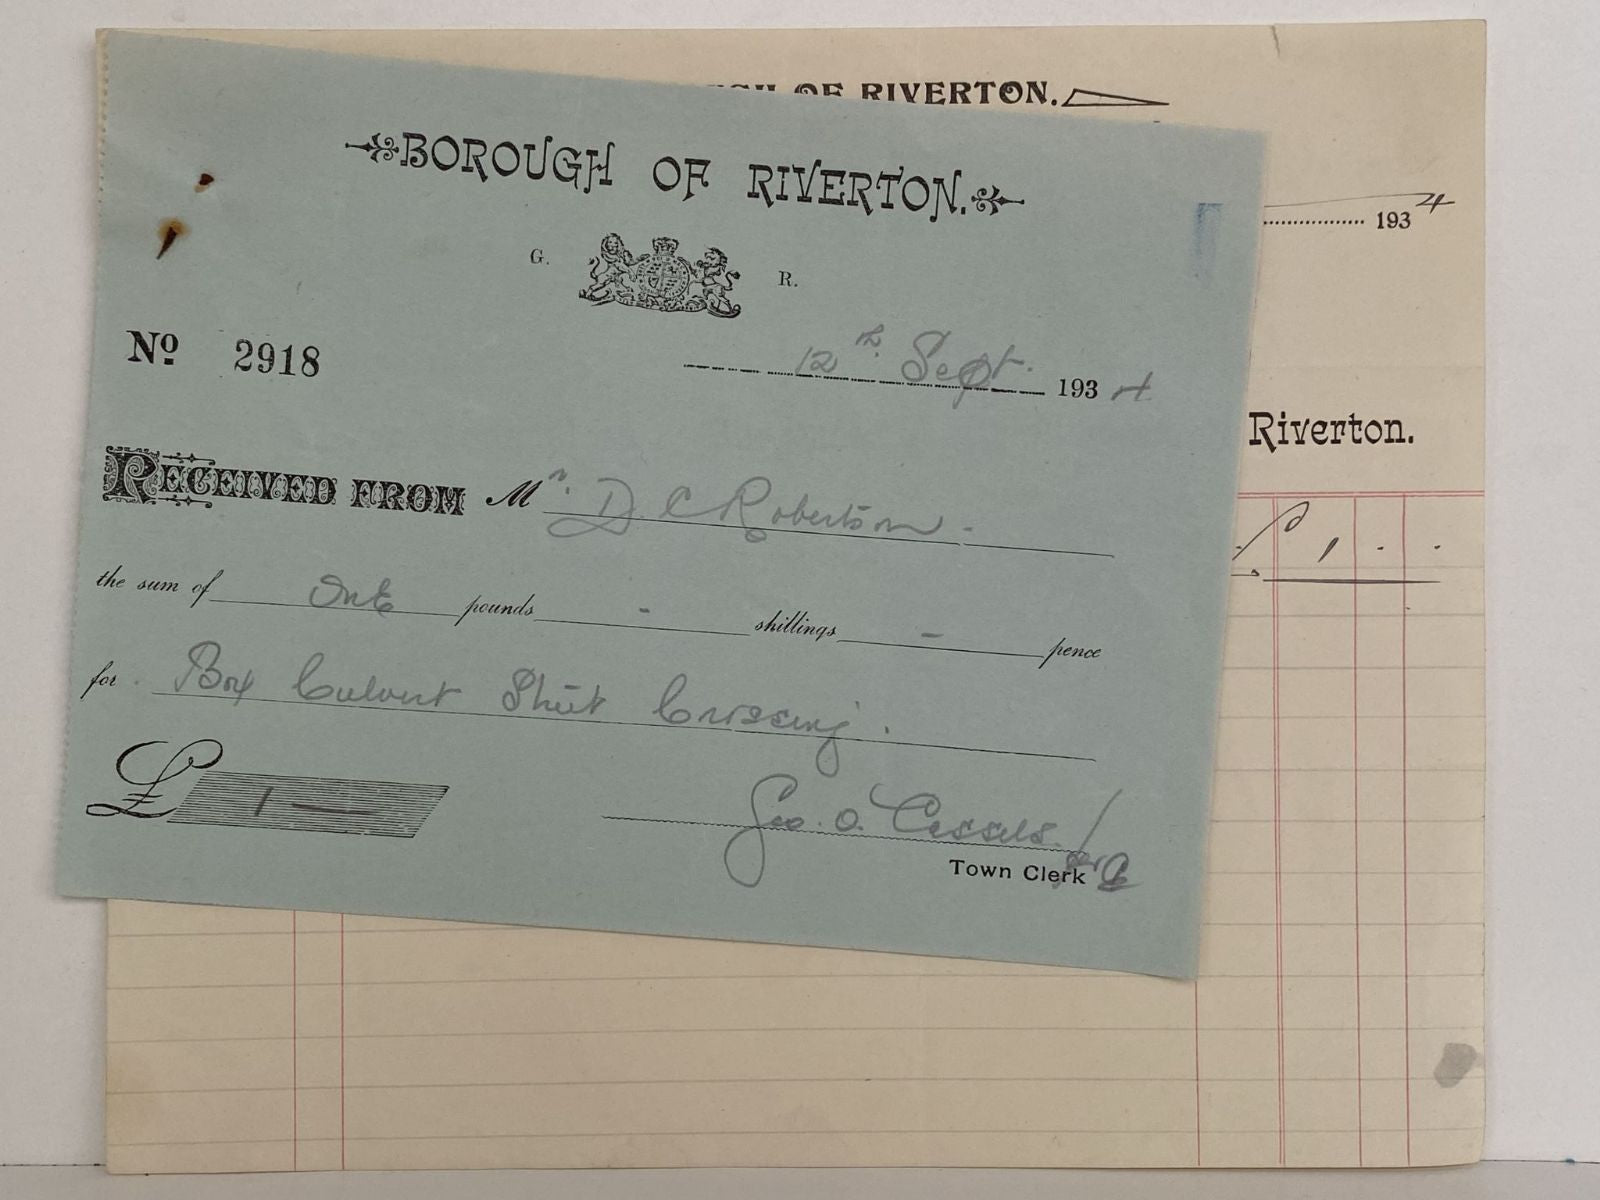 OF RIVERTON.
1934
Riverton.
1 . .
BOROUGH OF RIVERTON.
G. R.
No 2918
12th Sept. 1934
RECEIVED FROM Mr. D. C Robertson -
the sum of One pounds - shillings - pence
for Box Culvert Street Crossing.
£ 1 —
Geo. O. Cassels.
Town Clerk